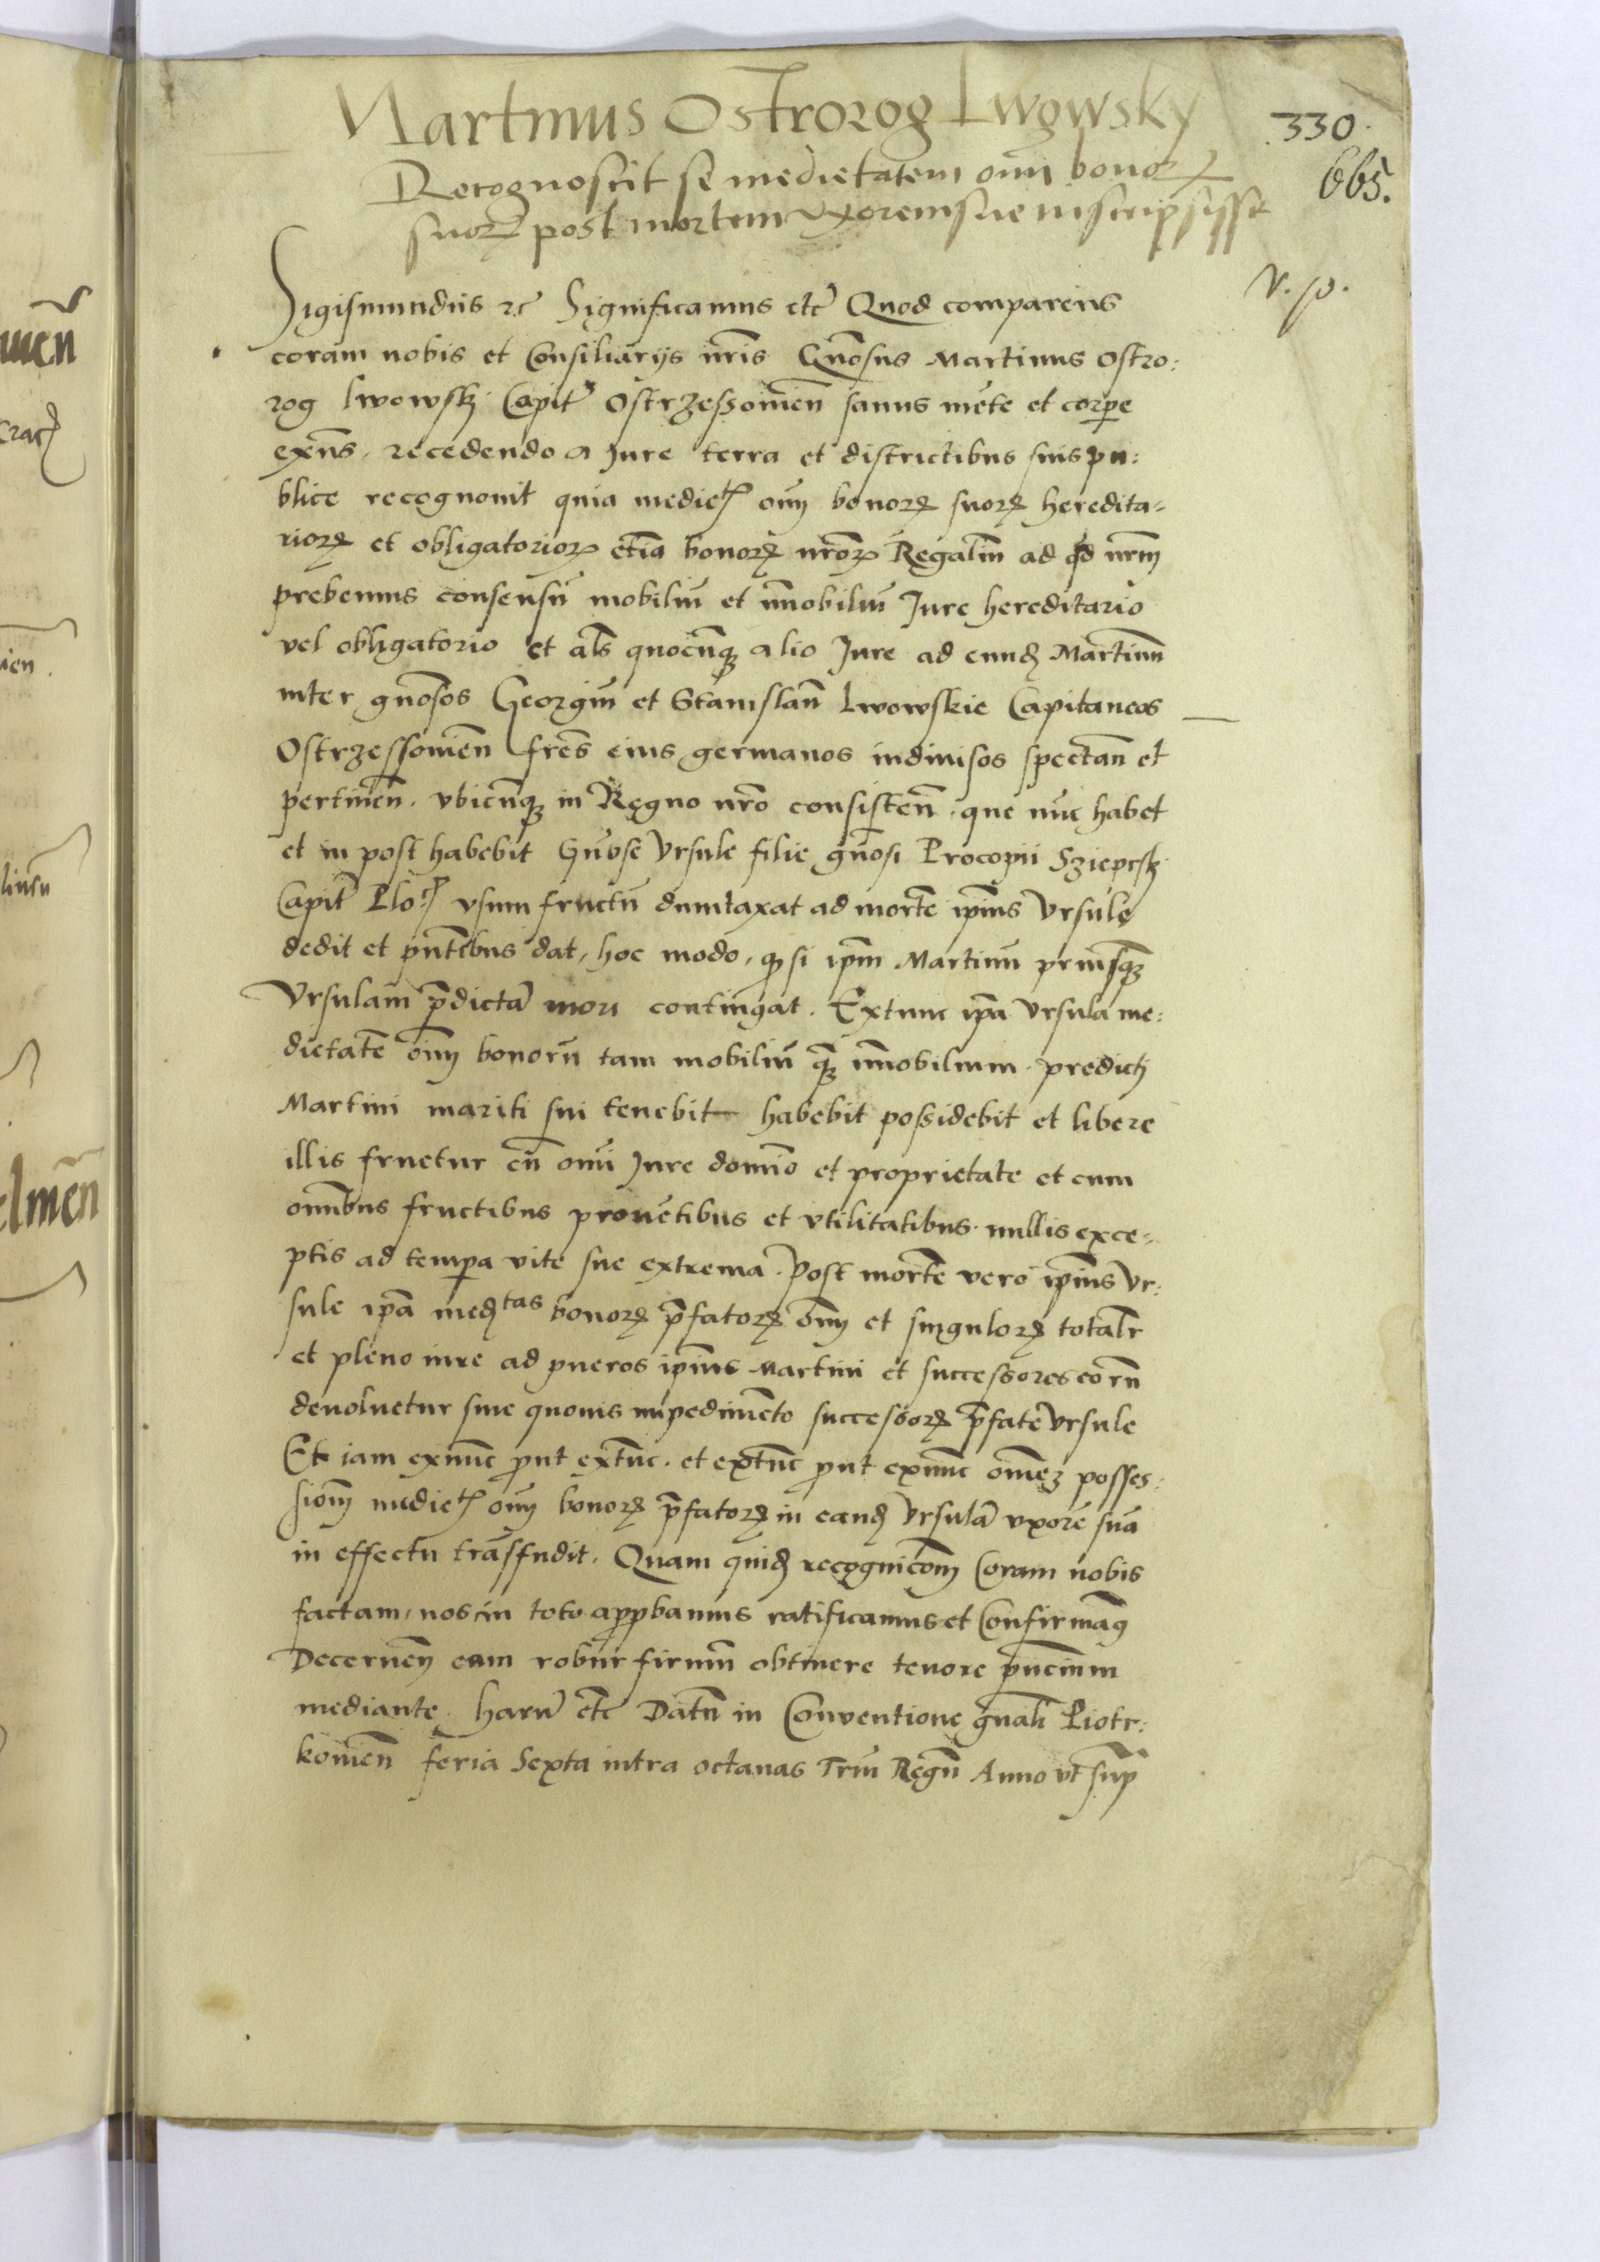 Martinus Ostrorog Lwgwsky
330.
Recognoscit se medietatem oim bonoꝝ
665.
suoꝝ post mortem uxorem sue inscripsisse
V. p.
Sigismundus ꝛc Significamus etc̄ Quod comparens
coram nobis et Consiliarijs nr̄is Gn̄osus Martinus Ostro:
rog Lwowsk̕ Capit̄ Ostrzessouien̄ sanus mēte et corꝑe
exn̄s. recedendo a Jure terra et districtibus suis pu:
blice recognouit quia mediet̄ oīm bonoꝝ suoꝝ heredita-
rioꝝ et obligatorioꝝ etiā bonoꝝ nr̄oꝝ Regaliū ad qd nr̄m
prebemus consensū mobiliū et īmobiliū Jure hereditario
vel obligatorio et als̄ quocūqꝫ alio Jure ad eund̄ Martinū
inter gn̄osos Georgiū et Stanislaū Lwowskie Capitaneos
Ostrzessouien̄ fr̄es eius germanos indiuisos spectan̄ et
pertinen̄. vbicūqꝫ in Regno nr̄o consisten̄. que nūc habet
et in post habebit Gn̄ose Vrsule filie gn̄osi Procopii Szieprsk̕
Capit̄ Ploc̄ vsum fructū dumtaxat ad mortē ip̄ius Vrsule
dedit et pn̄tibus dat, hoc modo, ꝙ si ip̄m Martinū priusqꝫ
Vrsulam p̄dictā mori contingat. Extunc ip̄a Vrsula me:
dietatē oīm bonorū tam mobiliū qꝫ īmobilium. predicti
Martini mariti sui tenebit habebit possidebit et libere
illis fruetur cū om̄i Jure domīo et proprietate et cum
om̄ibus fructibus prouētibus et vtilitatibus. nullis exce-
ptis ad tempa vite sue extrema. Post mortē vero ip̄ius Vr:
sule ip̄a med̄tas bonoꝝ p̄fatoꝝ oīm et singuloꝝ totalr̄
et pleno iure ad pueros ip̄ius Martini et successores eorū
deuoluetur sine quouis impedimēto successoꝝ p̄fate Vrsule
Et iam exnūc ꝓut extūc. et extūc ꝓut exnūc om̄eꝫ posses:
siom̄ mediet̄ oīm bonoꝝ p̄fatoꝝ in eand̄ Vrsulā vxorē suā
in effectu trāsfudit. Quam quid̄ recognicōm Coram nobis
factam, nos in toto apꝓbamus ratificamus et Confirmamꝰ
Decernen̄ eam robur firmū obtinere tenore pn̄cium
mediante. Harū etc̄ Datū in Conventione gn̄ali Piotr:
kouien̄ feria Sexta intra octauas Triū Regū Anno vt sup̄